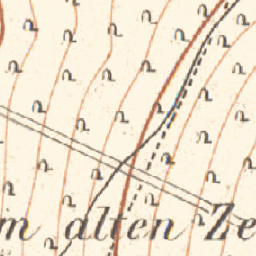 m alten Ze